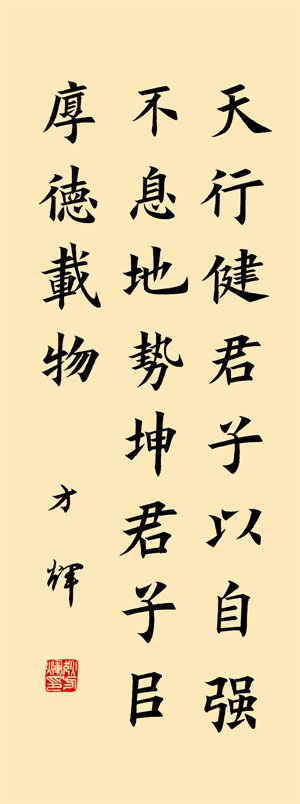 天行健君子以自强
不息地勢坤君子㠯
厚德載物
才輝